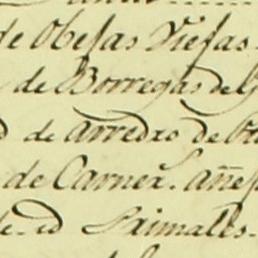 de Obejas Viejas
de Borregas de
de arredro de
de Carner. añe
de id Primales